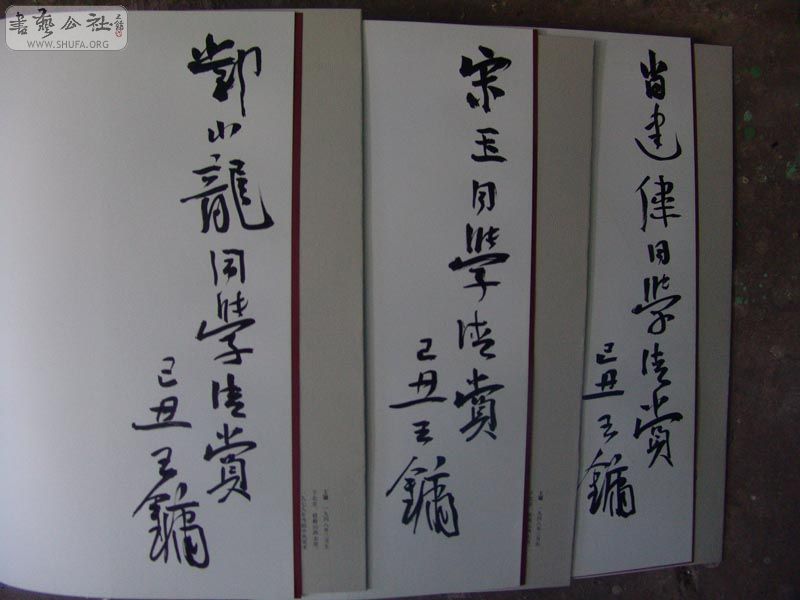 書藝公社
WWW.SHUFA.ORG
鄧小龍同學清賞
己丑王鏞
宋玉同學清賞
己丑王鏞
肖建偉同學清賞
己丑王鏞